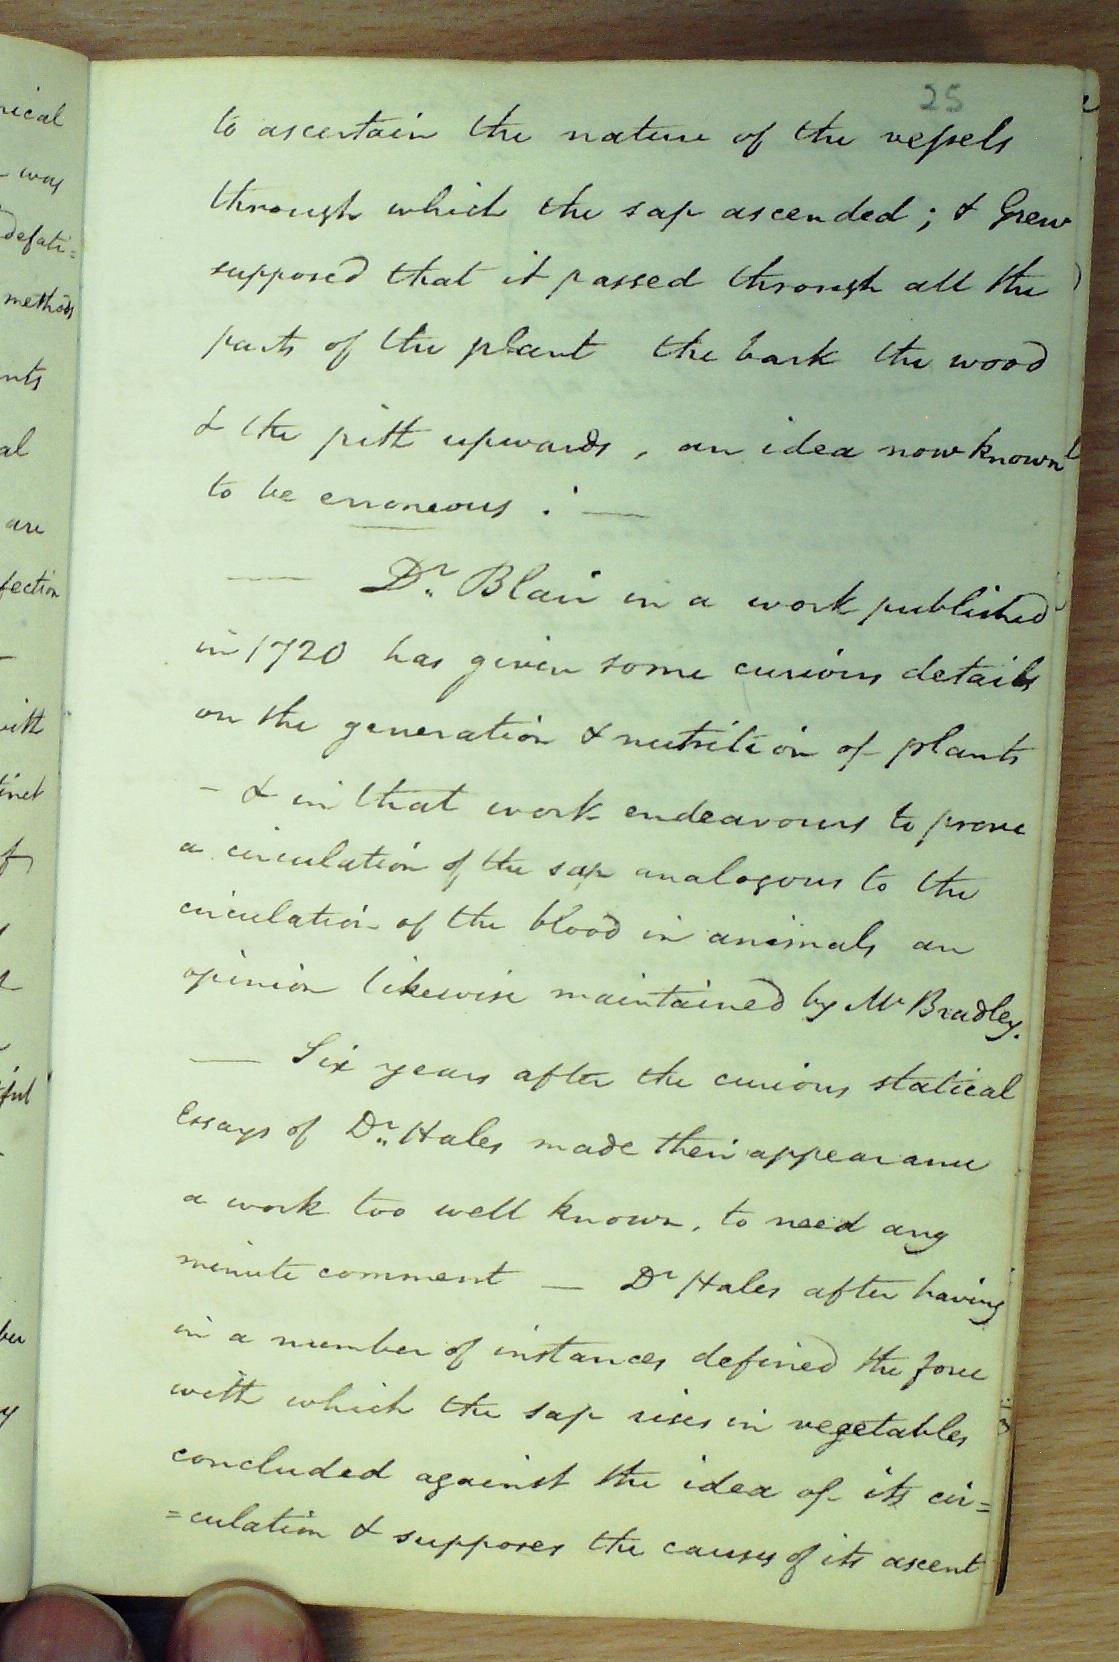 25
to ascertain the nature of the vessels
through which the sap ascended; & Grew
supposed that it passed through all the
parts of the plant the bark the wood
& the pith upwards, an idea now known
to be erroneous : —
— Dr. Blair in a work published
in 1720 has given some curious details
on the generation & nutrition of plants
- & in that work endeavours to prove
a circulation of the sap analogous to the
circulation of the blood in animals an
opinion likewise maintained by Mr Bradley.
— Six years after the curious statical
Essays of Dr. Hales made their appearance
a work too well known, to need any
minute comment — Dr Hales after having
in a number of instances defined the force
with which the sap rises in vegetables
concluded against the idea of its cir=
=culation & supposes the causes of its ascent
nical
was
defati=
methods
nts
al
are
fection
with
tinct
of
ful
ber
y